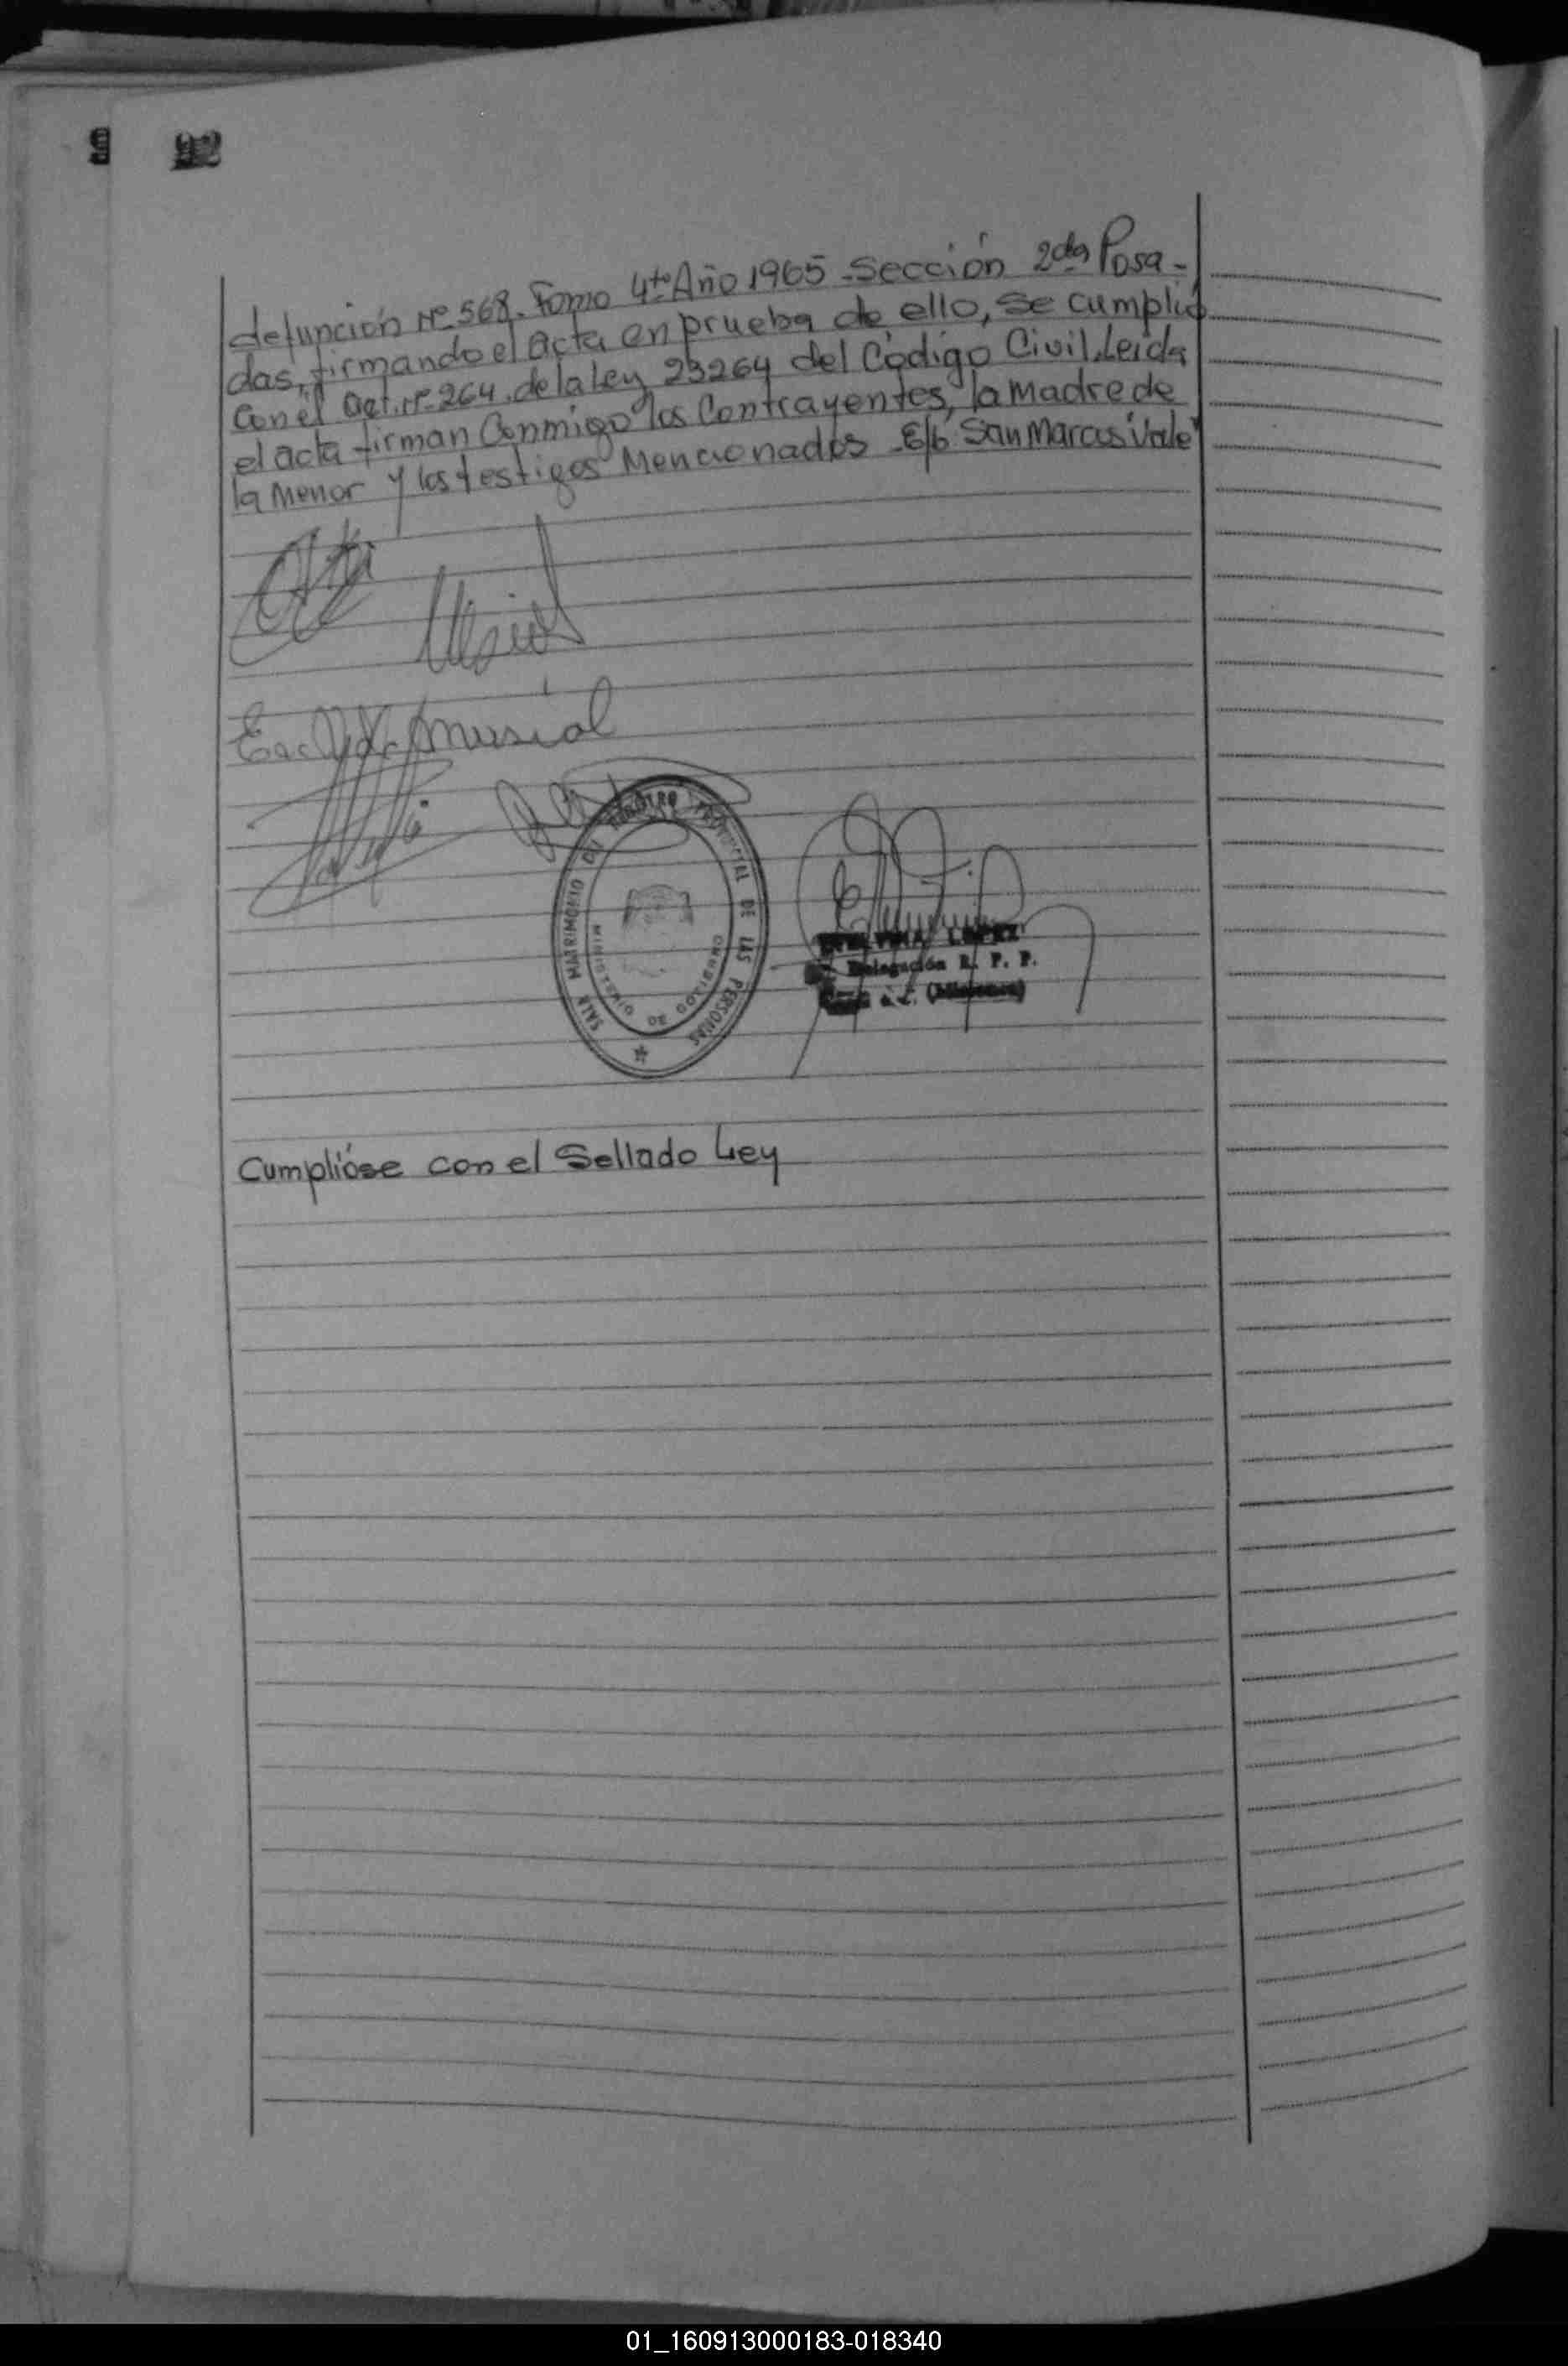 defunción Nº 568. Tomo 4to Año 1965 - Sección 2da Posa-
das, firmando el acta en prueba de ello, se cumplió
con el art. nº 264. de la Ley 23264 del Código Civil, Leída
el acta firman conmigo los Contrayentes, la Madre de
la Menor y los testigos Mencionados - E/b "San Marcos" Vale"
Musial
SALA MATRIMONIO DEL REGISTRO PROVINCIAL DE LAS PERSONAS
MINISTERIO DE GOBIERNO
LOPEZ
Delegación R. P. P.
(Misiones)
Cumplióse con el Sellado Ley
01_160913000183-018340